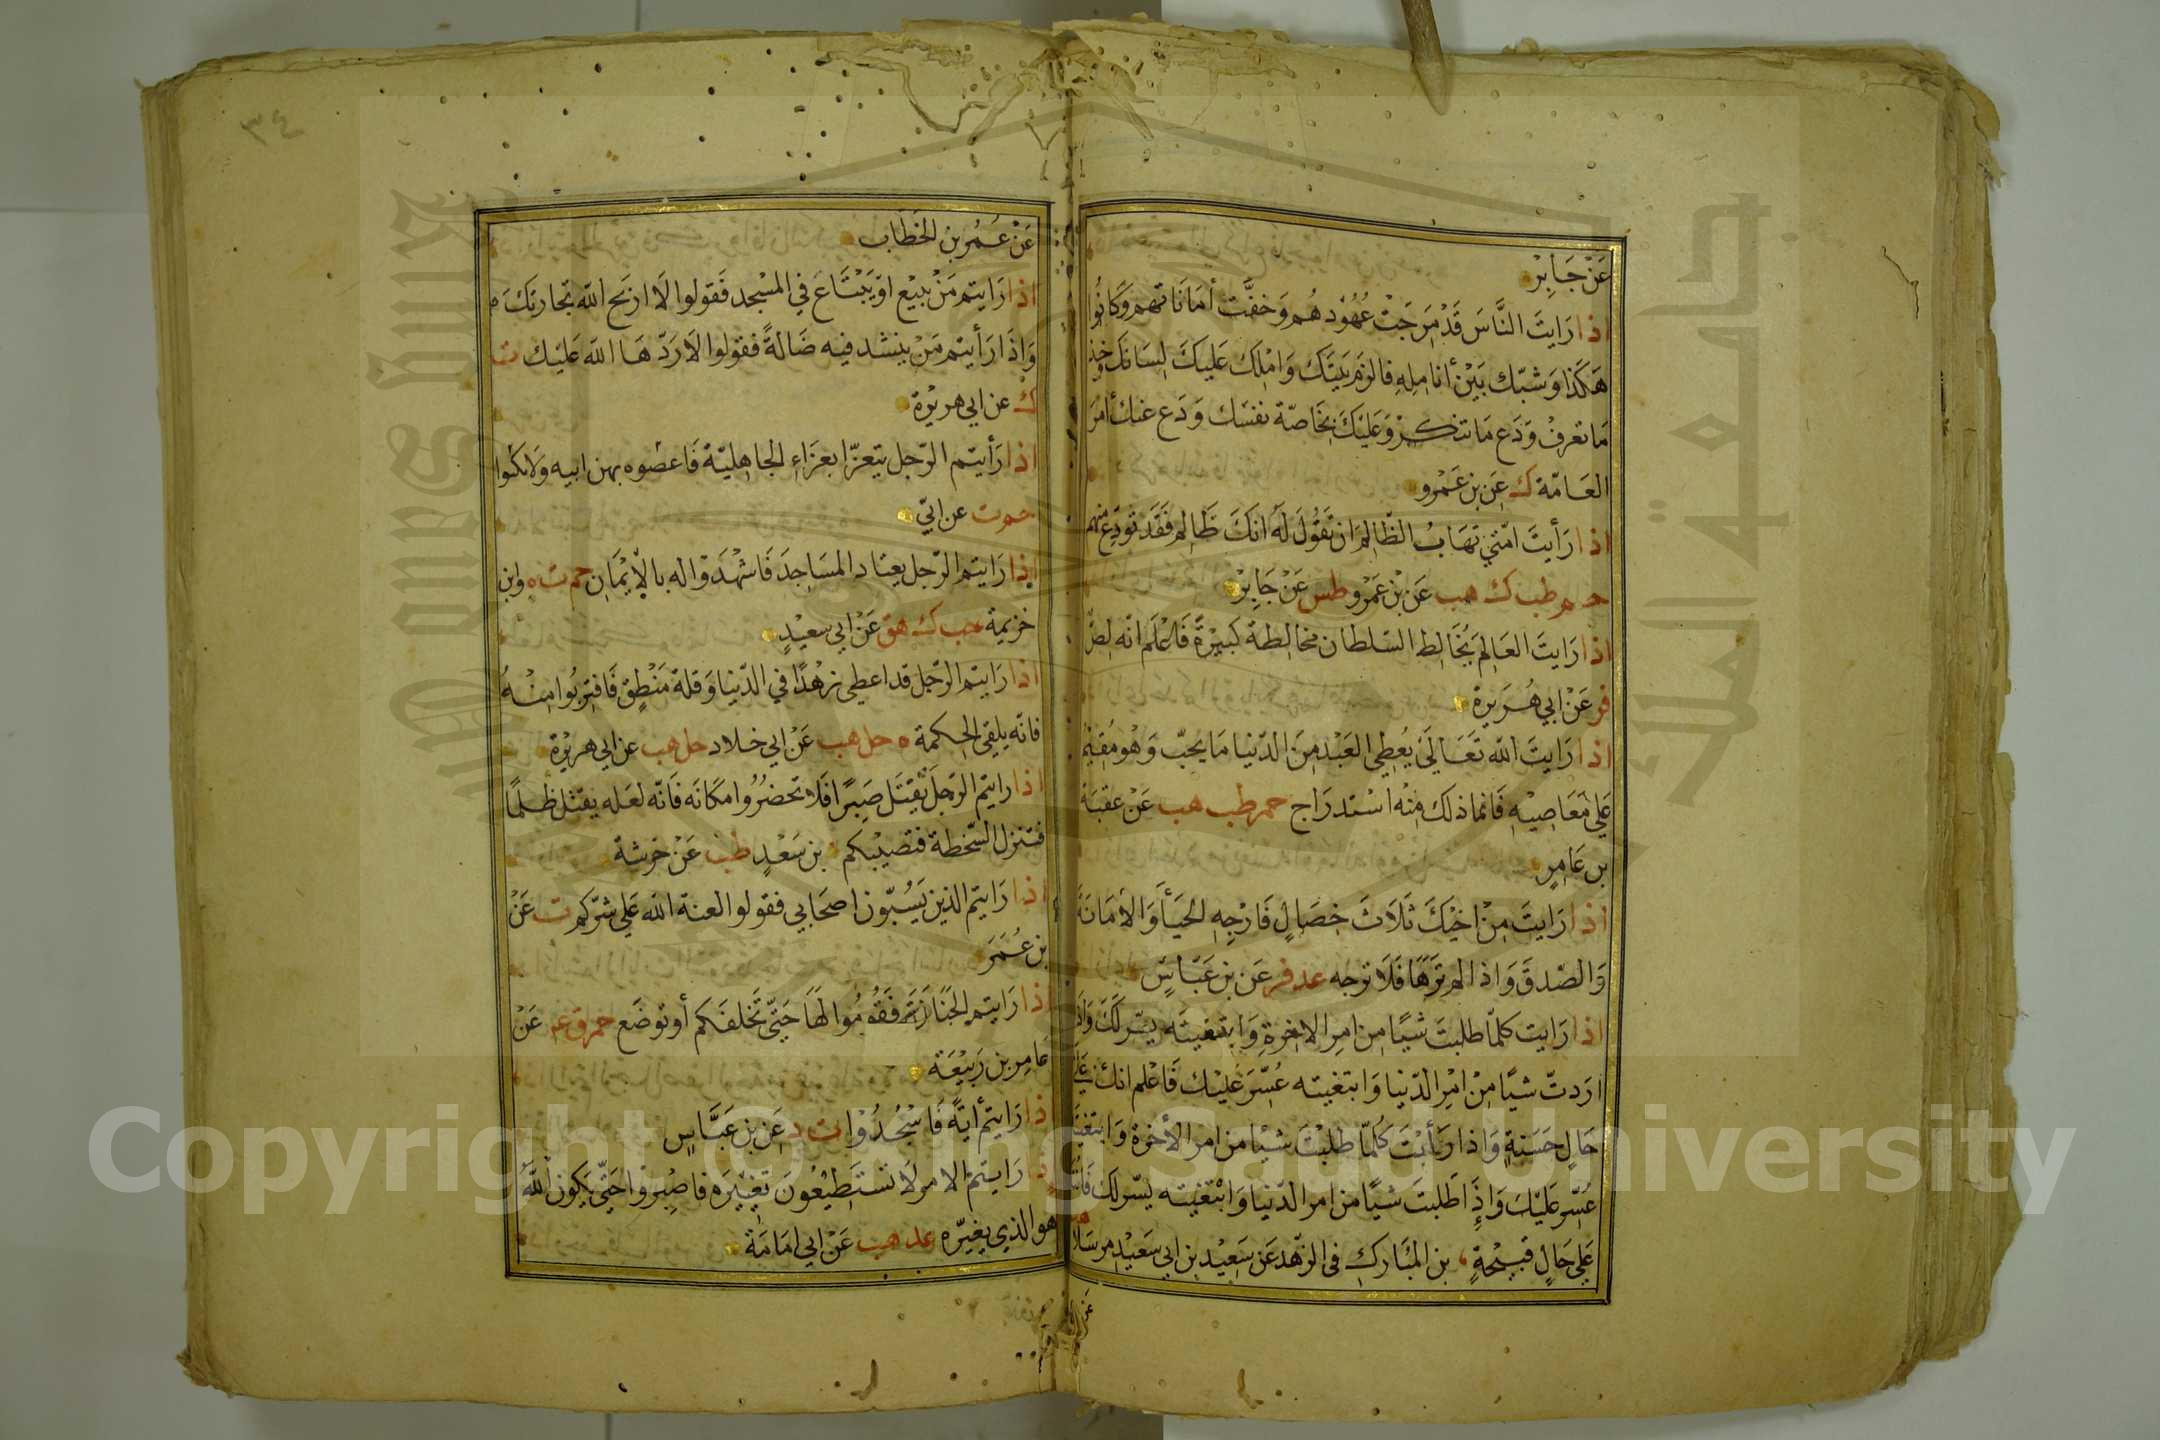 عَنْ جَابِرْ
اذا رَايتَ النَّاسَ قَدْ مَرَجَتْ عُهُوْدهُم وَخفَّت أمَانَاتهم وَكَانُوا
هَكَذا وَشبّك بَيْنَ أنامِلِهِ فالزَم بَيتَكَ وَامْلِكْ عَلَيكَ لِسَانكَ وخذ
مَا تعرفْ وَدَع مَا تنكر وَعَليْكَ بخَاصّة نفسَك وَدَع عَنك أمْرَ
العَامّة ك عَن بن عَمْرو
اذا رَأيتَ امّتي تهَابُ الظّالِمَ ان تَقُوْلَ لَهُ انكَ ظَالم فقَد تودّع منهم
حم طب ك هب عَن بْن عَمْرو طس عَنْ جَابِرْ
اذا رَايتَ العَالِمَ يُخَالِط السّلطان مخالطة كَبِيْرَةً فَاعْلَم انّه لصّ
فر عَنْ ابي هُرَيرة
اذا رَايتَ الله تَعَالَي يُعطِي العَبْد مِنَ الدّنيا مَا يحِبّ وَهُو مُقيْم
عَلي مَعَاصِيْهِ فَانما ذلك مِنْه اسْتدرَاج حم طب هب عَنْ عقبَة
بن عَامِرٍ
اذا رَايتَ مِنْ اخيْكَ ثَلَاثَ خِصَالٍ فَارْجه الحَيَأ وَالأمَانَة
وَالصّدقَ وَاذا لم تَرَهَا فَلَا ترجه عد فر عَن بن عَبّاسٍ
اذا رَايت كلمّا طلبتَ شيًا من امِر الاخرةِ وَابتغيتَه يسّر لكَ وَاذا
ارَدتّ شيًا مِنْ امْرِ الدّنيا وَابتغيته عُسِّرَ عَليْك فَاعْلم انكَ عَلي
حَالٍ حَسَنةٍ وَاذا رَأيْتَ كُلمّا طلبْتَ شيْا من امر الأخرة وَابتغيْتَه
عُسّر عَليْكَ وَاِذَا طَلبتَ شيًا من امر الدّنيا وَابْتغيته يسّر لكَ فَانتَ
عَلي حَالٍ قبيْحةٍ بن المبَارك في الزّهد عَن سَعِيْد بن ابي سَعيْد مرسَلا هب
عَن
عَنْ عُمَر بن الخطاب
اذا رَايتم مَنْ يبيْع اوْ يَبْتَاعَ في المسْجد فَقولوا لَا اربَح الله تجارتكَ م
وَاذَا رَأيتم مَنْ ينشد فيه ضَالةً فقولوا لَا رَدّهَا الله عَليْك ت
ك عن ابي هريْرة
اذا رَأيتم الرّجل يتعزّا بعزَاءِ الجاهِليّة فَاعضّوه بهن ابيه وَلاتكنوا
حم ت عن ابيّ
اذا رَايتم الرّجل يعتاد المسَاجدَ فَاشْهَدوْا له بالْإيْمَان حم ت ه وابن
خزيمة حب ك هق عَنْ ابي سعيْدٍ
اذا رَايتم الرّجل قد اعطي زهْدًا في الدّنيا وَقلة مَنْطِقٍ فَاقتربُوا مِنْهُ
فانّه يلقي الحِكمة ه حل هب عَنْ ابي خلاد حل هب عن ابي هريْرة
اذا رايتم الرّجَلَ يُقتَل صَبرًا فَلا تحضرُوا مكَانَه فَانّه لعَله يقتل ظلمًا
فتنزل السّخطة فتصيْبكم بن سَعْدٍ طب عَنْ خرشة
اذا رَايتم الذين يَسُبّون اصحَابي فقولوا لعنة الله عَلي شرّكم ت عَنْ
بن عُمَرَ
اذا رَايتم الجَنَازَة فَقُومُوا لهَا حَتّي تخلفَكم أو توضَع حم ق عم عَنْ
عَامِر بن رَبيْعَة
اذا رَايتم أيَةً فَاسْجُدُوْا ت د عَن بن عَبَّاسٍ
اذا رَايتم الامر لَا تسْتَطيْعُونَ تغييرَه فاصْبِروا حَتّي يكون اللهُ
هوالذي يغيّره عد هب عَنْ ابي امَامَة
٣٤
Copyright © King Saud University